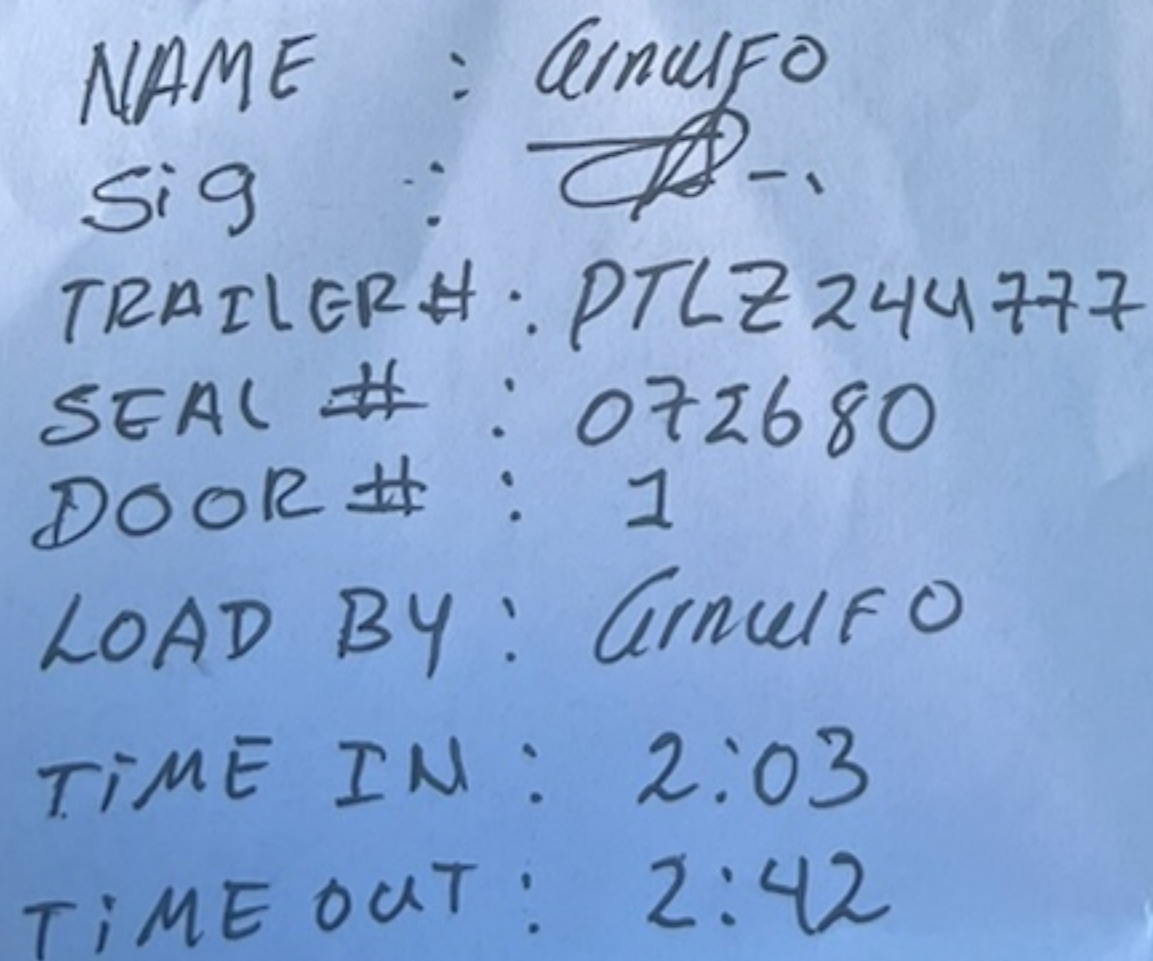 NAME : ArnulFO
Sig :
TRAILER# : PTLZ244777
SEAL # : 072680
DOOR # : 1
LOAD BY : ArnulFO
TiME IN : 2:03
TiME OUT : 2:42